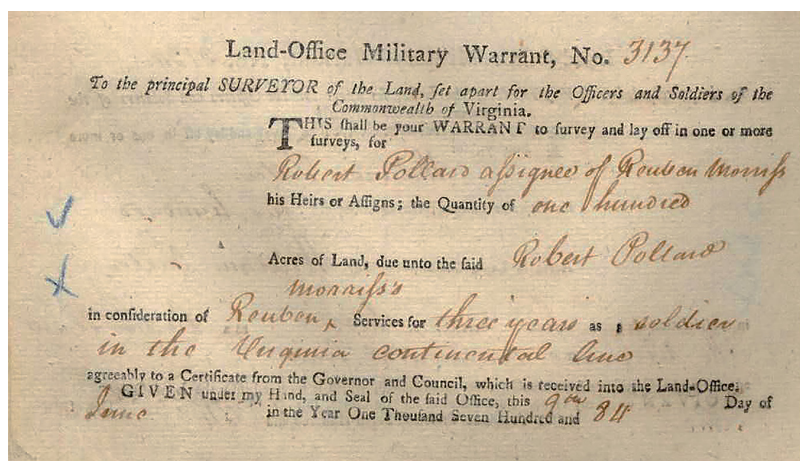 Land-Office Military Warrant, No. 3137
To the principal SURVEYOR of the Land, ſet apart for the Officers and Soldiers of the
Commonwealth of Virginia.
THIS ſhall be your WARRANT to ſurvey and lay off in one or more
ſurveys, for
Robert Pollard aſsignee of Reuben Morriſs
his Heirs or Aſſigns; the Quantity of one hundred
Acres of Land, due unto the ſaid Robert Pollard
Morriſs's
in conſideration of Reuben ‸ Services for three years as a soldier
in the Virginia continental line
agreeably to a Certificate from the Governor and Council, which is received into the Land-Office.
GIVEN under my Hand, and Seal of the ſaid Office, this 9th Day of
June in the Year One Thouſand Seven Hundred and 84